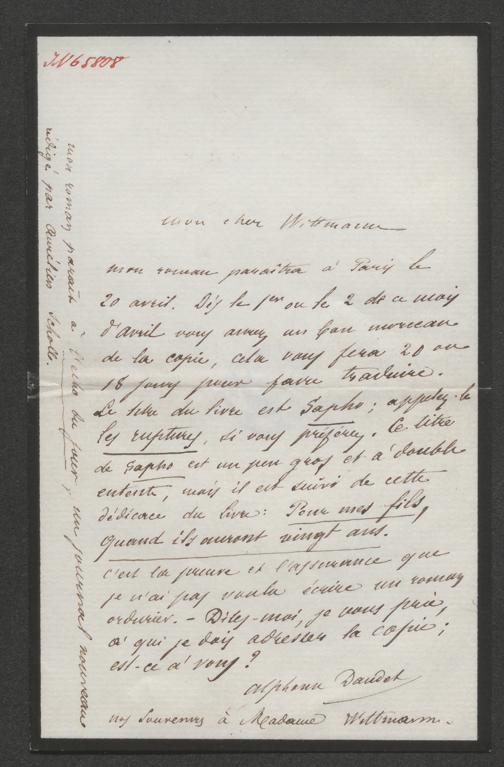 IN 65808
mon cher Wittmann
mon roman paraîtra à Paris le
20 avril. Dès le 1er ou le 2 de ce mois
d'avril vous aurez un bon morceau
de la copie, cela vous fera 20 ou
18 jours pour faire traduire.
Le titre du livre est Sapho ; appelez-le
les ruptures, si vous préférez. Ce titre
de Sapho est un peu gros et à double
entente, mais il est suivi de cette
dédicace du livre : Pour mes fils,
quand ils auront vingt ans.
c'est la preuve et l'assurance que
je n'ai pas voulu écrire un roman
ordurier. – Dites-moi, je vous prie,
à qui je dois adresser la copie ;
est-ce à vous ?
Alphonse Daudet
nos souvenirs à Madame Wittmann.
mon roman paraît à l'écho du jour, un journal nouveau
rédigé par Aurélien Scholl.